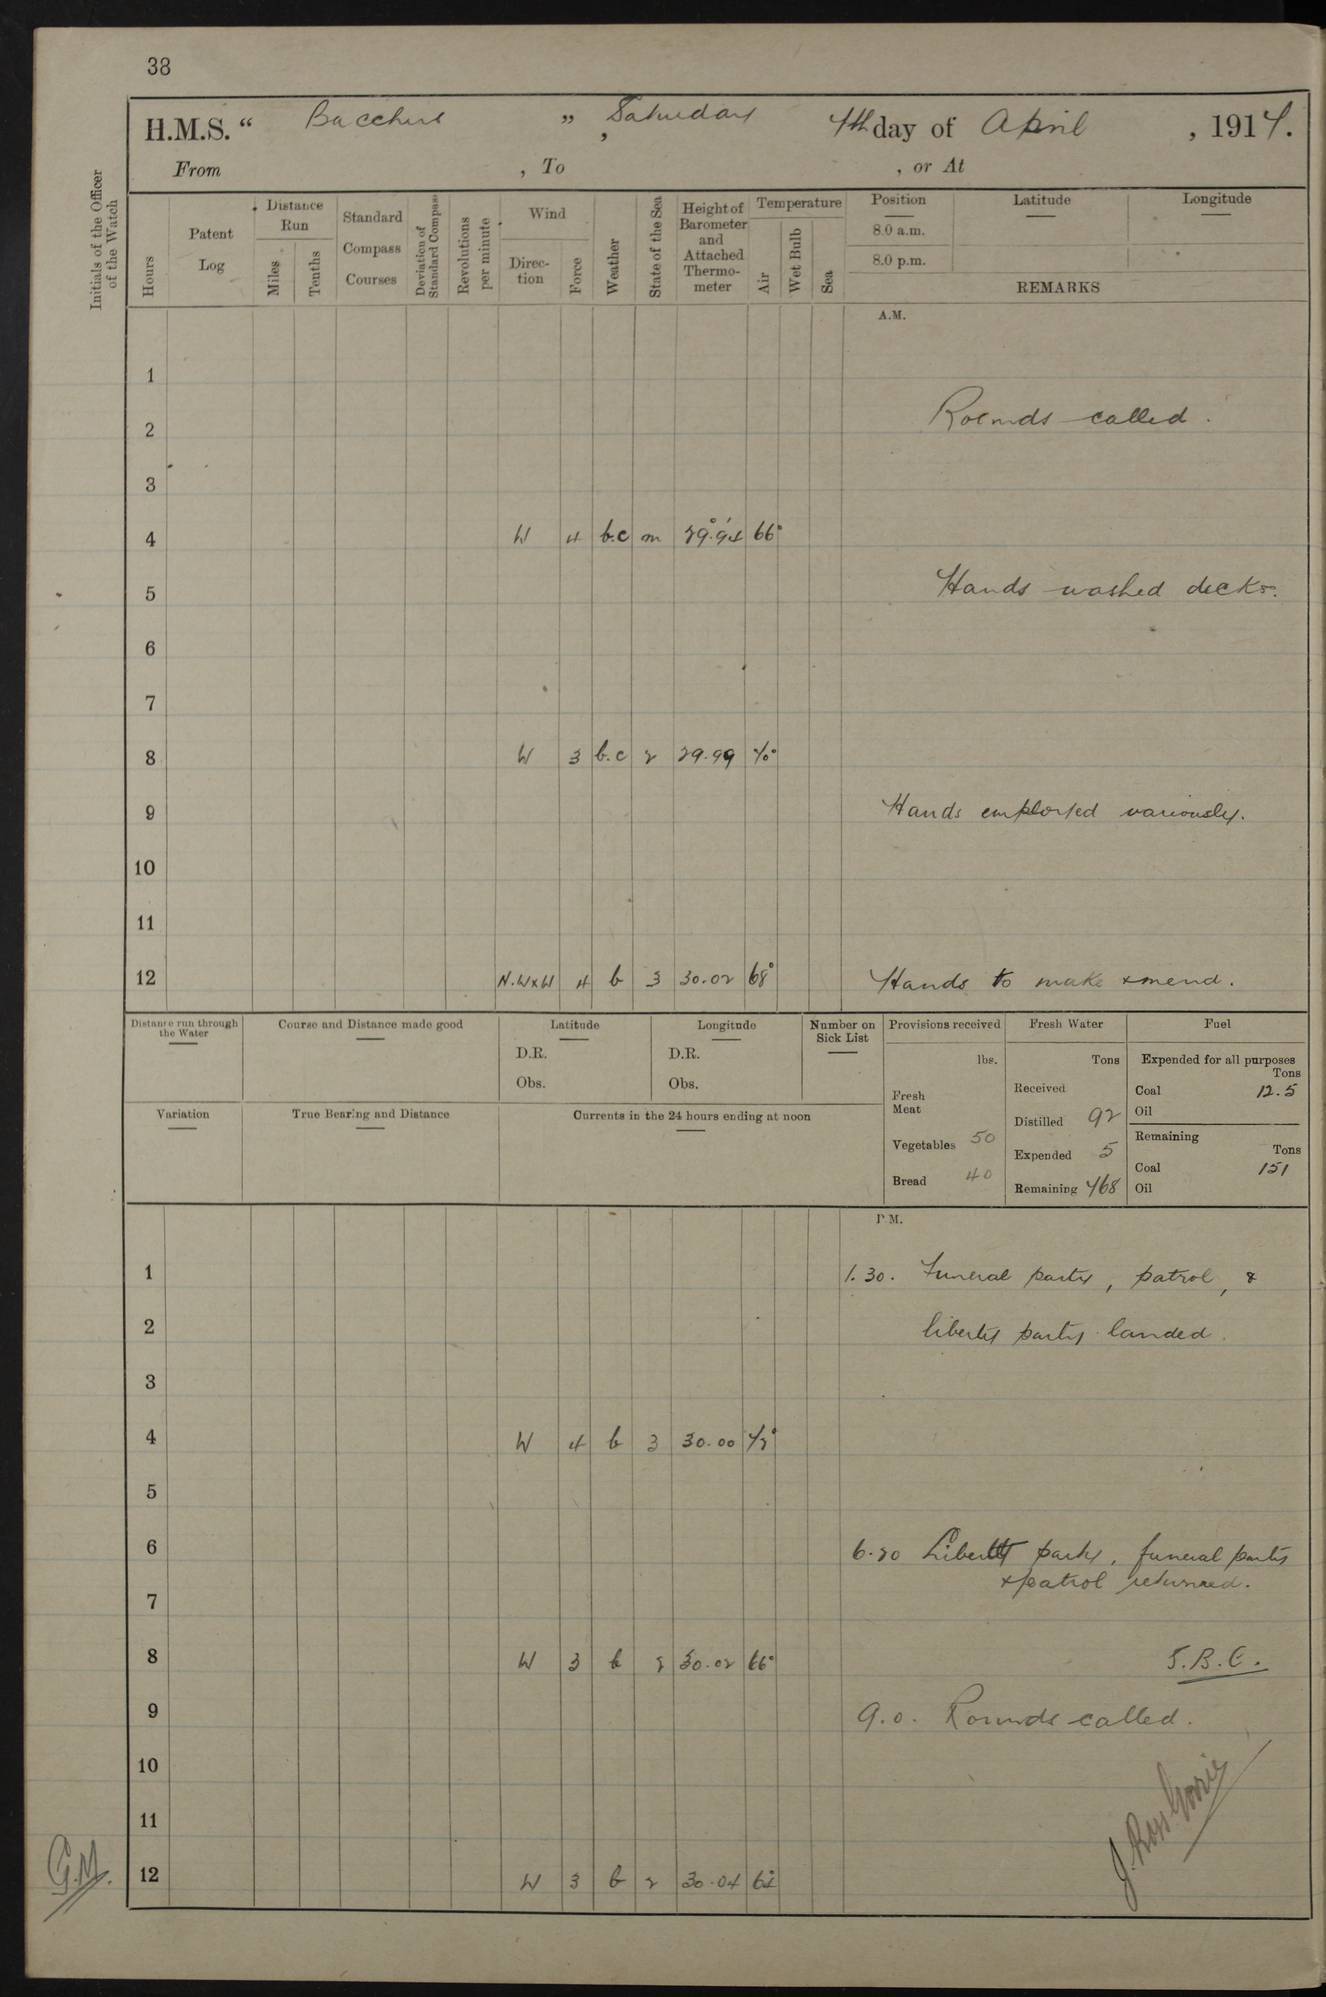 38
H.M.S. “ Bacchus ” , Saturday 4th day of April , 1914.
From , To , or At
Initials of the Officer of the Watch
Hours
Patent Log
Distance Run
Miles
Tenths
Standard Compass Courses
Deviation of Standard Compass
Revolutions per minute
Wind
Direc-tion
Force
Weather
State of the Sea
Height of Barometer and Attached Thermo-meter
Temperature
Air
Wet Bulb
Sea
Position Latitude Longitude
8.0 a.m.
8.0 p.m.
REMARKS
A.M.
1
2 Rounds called.
3
4 W 4 b.c m 29.94 66°
5 Hands washed decks.
6
7
8 W 3 b.c 2 29.99 70°
9 Hands employed variously.
10
11
12 N.WxW 4 b 3 30.02 68° Hands to make & mend.
Distance run through the Water
Course and Distance made good
Latitude
D.R.
Obs.
Longitude
D.R.
Obs.
Number on Sick List
Provisions received
lbs.
Fresh Meat
Vegetables 50
Bread 40
Fresh Water
Tons
Received
Distilled 92
Expended 5
Remaining 468
Fuel
Expended for all purposes
Tons
Coal 12.5
Oil
Remaining
Tons
Coal 151
Oil
Variation
True Bearing and Distance
Currents in the 24 hours ending at noon
P.M.
1 1.30. Funeral party, patrol, &
2 liberty party landed.
3
4 W 4 b 3 30.00 72°
5
6 6.20 Liberty party, funeral party
& patrol returned.
7
8 W 3 b 2 30.02 66° S.B.C.
9 9.0. Rounds called.
10
11
12 W 3 b 2 30.04 64°
G.M.